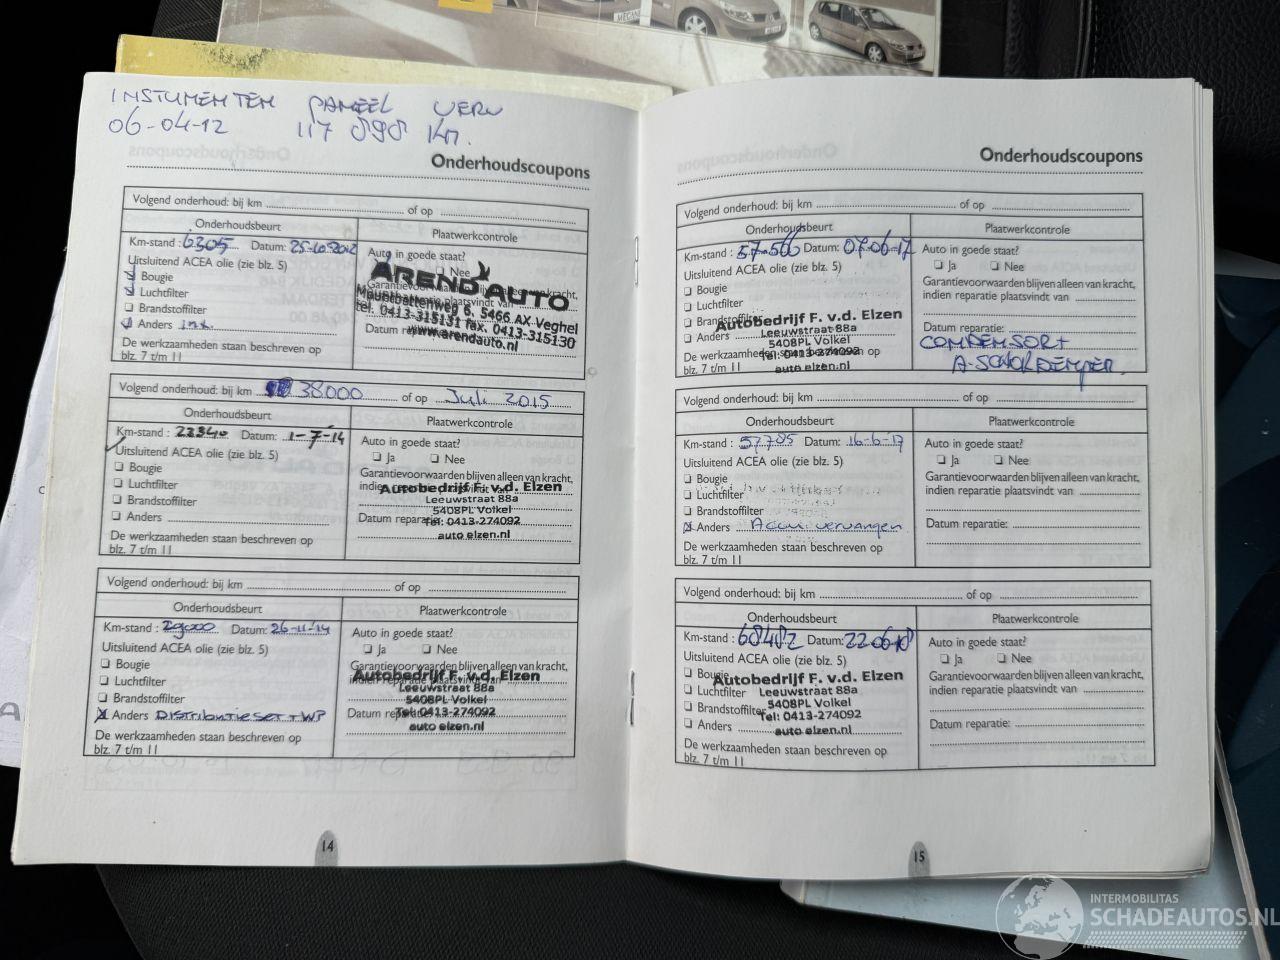 INSTUMENTEN PANEEL VERV
06-04-12 117 898 km.
Onderhoudscoupons
Volgend onderhoud: bij km of op
Onderhoudsbeurt Plaatwerkcontrole
Km-stand : 6305 Datum: 25-10-2012
Uitsluitend ACEA olie (zie blz. 5)
Bougie
Luchtfilter
Brandstoffilter
Anders
De werkzaamheden staan beschreven op
blz. 7 t/m 11
Auto in goede staat?
Nee
Garantievoorwaarden blijven alleen van kracht,
ARENDAUTO
Mountbattenweg 6, 5466 AX Veghel
tel. 0413-315131 fax. 0413-315130
www.arendauto.nl
Volgend onderhoud: bij km 38000 of op Juli 2015
Onderhoudsbeurt Plaatwerkcontrole
Km-stand : 22340 Datum: 1-7-14
Uitsluitend ACEA olie (zie blz. 5)
Bougie
Luchtfilter
Brandstoffilter
Anders
De werkzaamheden staan beschreven op
blz. 7 t/m 11
Auto in goede staat?
Ja Nee
Garantievoorwaarden blijven alleen van kracht,
indien reparatie plaatsvindt van
Autobedrijf F. v.d. Elzen
Leeuwstraat 88a
5408PL Volkel
Datum reparatie:
Tel: 0413-274092
auto elzen.nl
Volgend onderhoud: bij km of op
Onderhoudsbeurt Plaatwerkcontrole
Km-stand : 29000 Datum: 26-11-14
Uitsluitend ACEA olie (zie blz. 5)
Bougie
Luchtfilter
Brandstoffilter
Anders DISTRIBUTIESET + WP
De werkzaamheden staan beschreven op
blz. 7 t/m 11
Auto in goede staat?
Ja Nee
Garantievoorwaarden blijven alleen van kracht,
indien reparatie plaatsvindt van
Autobedrijf F. v.d. Elzen
Leeuwstraat 88a
5408PL Volkel
Datum reparatie:
Tel: 0413-274092
auto elzen.nl
14
Onderhoudscoupons
Volgend onderhoud: bij km of op
Onderhoudsbeurt Plaatwerkcontrole
Km-stand : 57-566 Datum: 07-06-17
Uitsluitend ACEA olie (zie blz. 5)
Bougie
Luchtfilter
Brandstoffilter
Anders
Autobedrijf F. v.d. Elzen
Leeuwstraat 88a
5408PL Volkel
Tel: 0413-274092
auto elzen.nl
De werkzaamheden staan beschreven op
blz. 7 t/m 11
Auto in goede staat?
Ja Nee
Garantievoorwaarden blijven alleen van kracht,
indien reparatie plaatsvindt van
Datum reparatie:
CONDENSOR +
A-SCHOKDEMPER.
Volgend onderhoud: bij km of op
Onderhoudsbeurt Plaatwerkcontrole
Km-stand : 57785 Datum: 16-6-17
Uitsluitend ACEA olie (zie blz. 5)
Bougie
Luchtfilter
Brandstoffilter
Anders Accu vervangen
De werkzaamheden staan beschreven op
blz. 7 t/m 11
Auto in goede staat?
Ja Nee
Garantievoorwaarden blijven alleen van kracht,
indien reparatie plaatsvindt van
Datum reparatie:
Volgend onderhoud: bij km of op
Onderhoudsbeurt Plaatwerkcontrole
Km-stand : 68482 Datum: 22-06-18
Uitsluitend ACEA olie (zie blz. 5)
Bougie
Luchtfilter
Brandstoffilter
Anders
Autobedrijf F. v.d. Elzen
Leeuwstraat 88a
5408PL Volkel
Tel: 0413-274092
auto elzen.nl
De werkzaamheden staan beschreven op
blz. 7 t/m 11
Auto in goede staat?
Ja Nee
Garantievoorwaarden blijven alleen van kracht,
indien reparatie plaatsvindt van
Datum reparatie:
15
INTERMOBILITAS
SCHADEAUTOS.NL